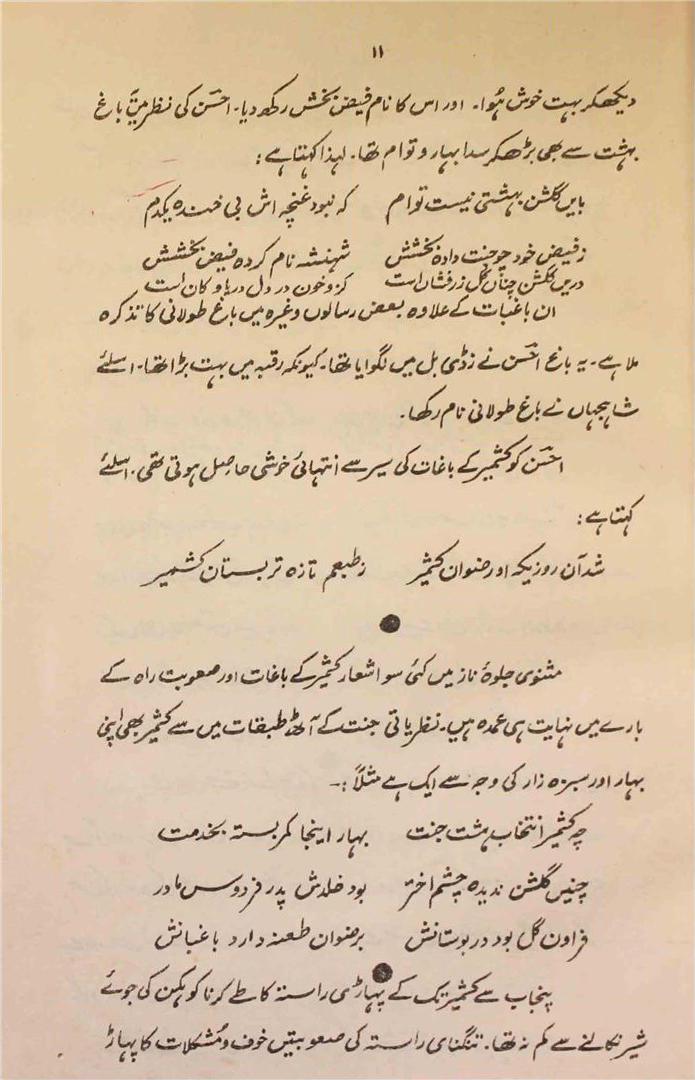 ۱۱
دیکھکر بہت خوش ہُوا۔ اور اس کا نام فیض بخش رکھ دیا۔ احسن کی نظر میں باغ
بہشت سے بھی بڑھکر سدا بہار و توام تھا۔ لہذا کہتا ہے:
بایں گلشن بہشتی نیست توام کہ نبود غنچہ اش بی خندہ یکدم
زفیض خود چو جنت دادہ بخشش شہنشہ نام کردہ فیض بخشش
دریں گلشن چناں گل زرفشاں است کزو خون در دل دریا و کان است
ان باغبات کے علاوہ بعض رسالوں وغیرہ میں باغ طولانی کا تذکرہ
ملا ہے۔ یہ باغ احسن نے زڈی بل میں لگوایا تھا۔ کیونکہ رقبہ میں بہت بڑا تھا۔ اسلئے
شاہجہاں نے باغ طولانی نام رکھا۔
احسن کو کشمیر کے باغات کی سیر سے انتہائی خوشی حاصل ہوتی تھی۔ اسلئے
کہتا ہے:
شد آن روزیکہ او رضوان کشمیر زطبعم تازہ تر بستان کشمیر
مثنوی جلوۂ ناز میں کئی سو اشعار کشمیر کے باغات اور صعوبت راہ کے
بارے میں نہایت ہی عمدہ ہیں۔ نظریاتی جنت کے آٹھ طبقات میں سے کشمیر بھی اپنی
بہار اور سبزہ زار کی وجہ سے ایک ہے مثلاً :-
چہ کشمیر انتخاب ہشت جنت بہار اینجا کمر بستہ بخدمت
چنیں گلشن ندیدہ چشم اختر بود خلدش پدر فردوس مادر
فراون گل بود در بوستانش برضوان طعنہ دارد باغبانش
پنجاب سے کشمیر تک کے پہاڑی راستہ کا طے کرنا کوہکن کی جوئے
شیر نکالنے سے کم نہ تھا۔ تنگنای راستہ کی صعوبتیں خوف و مُشکلات کا پہاڑ